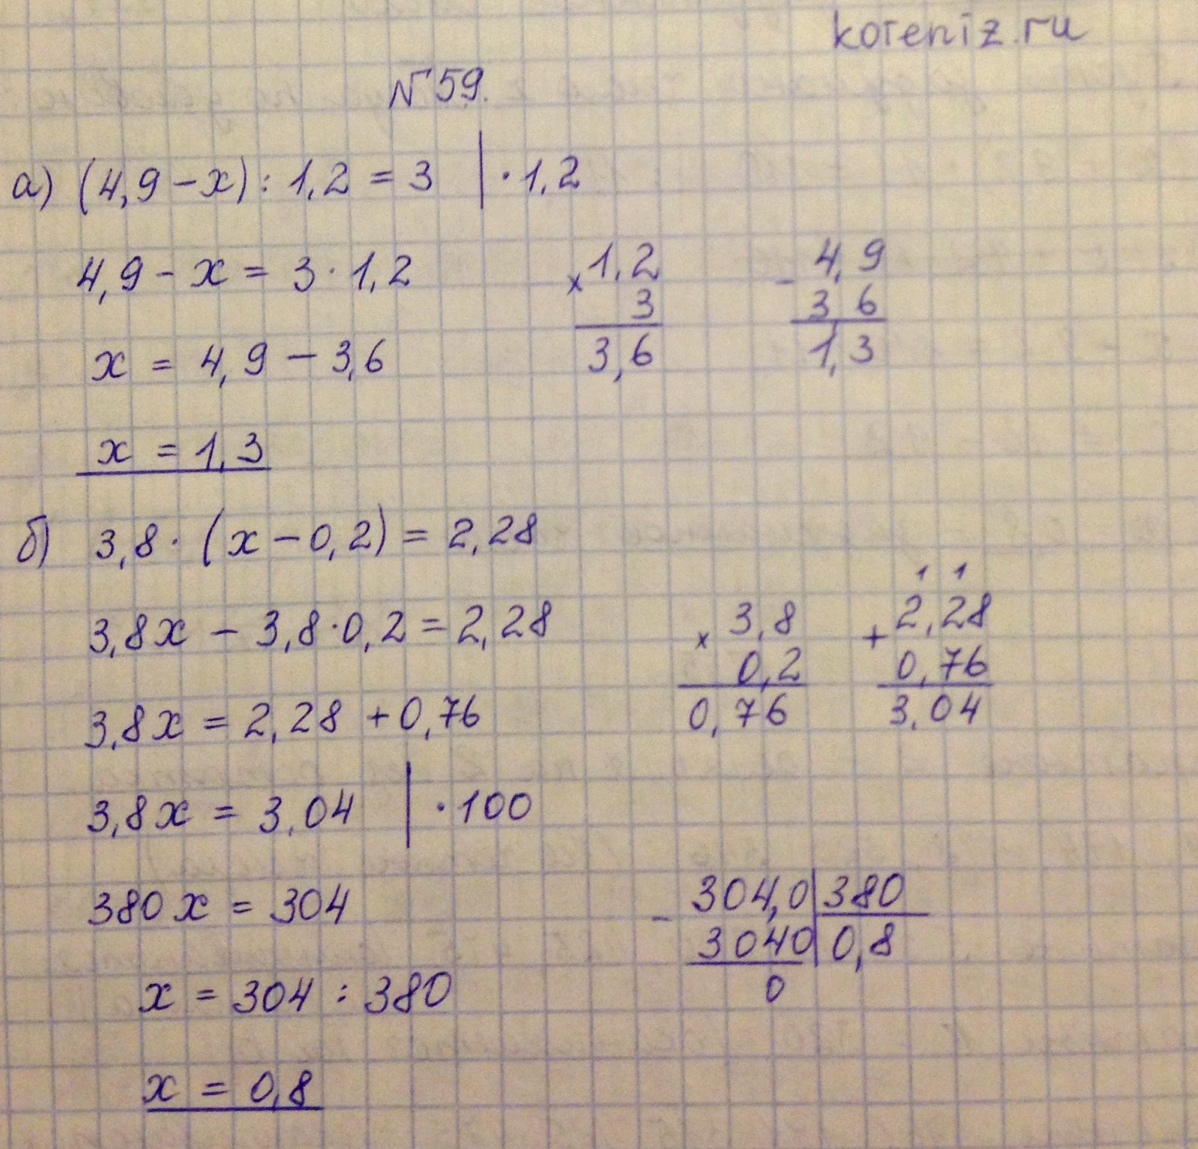 koreniz.ru
№59.
а) (4,9 - x) : 1,2 = 3 | · 1,2
4,9 - x = 3 · 1,2
x = 4,9 - 3,6
x = 1,3
× 1,2
3
3,6
- 4,9
3 6
1,3
б) 3,8 · (x - 0,2) = 2,28
3,8x - 3,8 · 0,2 = 2,28
3,8x = 2,28 + 0,76
3,8x = 3,04 | · 100
380x = 304
x = 304 : 380
x = 0,8
× 3,8
0,2
0,76
1 1
+ 2,28
0,76
3,04
- 304,0 | 380
3040 | 0,8
0